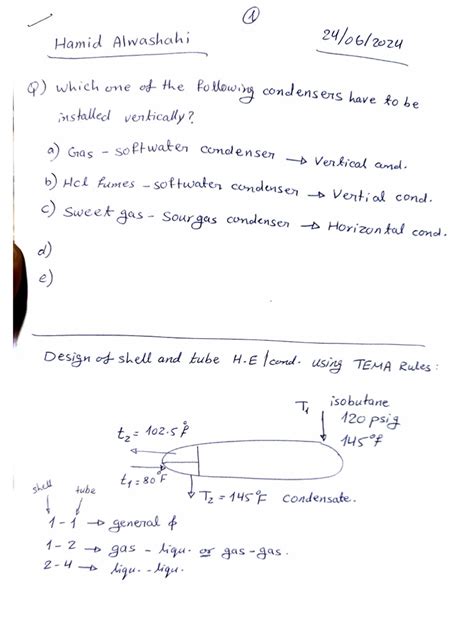 ①
Hamid Alwashahi
24/06/2024
Q) which one of the following condensers have to be
installed vertically?
a) Gas - softwater condenser → Vertical cond.
b) Hcl fumes - softwater condenser → Vertial cond.
c) Sweet gas - Sour gas condenser → Horizontal cond.
d)
e)
Design of shell and tube H.E/cond. using TEMA Rules:
T₁
isobutane
120 psig
145°F
t₂ = 102.5°F
t₁ = 80°F
T₂ = 145°F condensate.
shell
tube
1-1 → general ϕ
1-2 → gas - liqu. or gas-gas.
2-4 → liqu. -liqu.